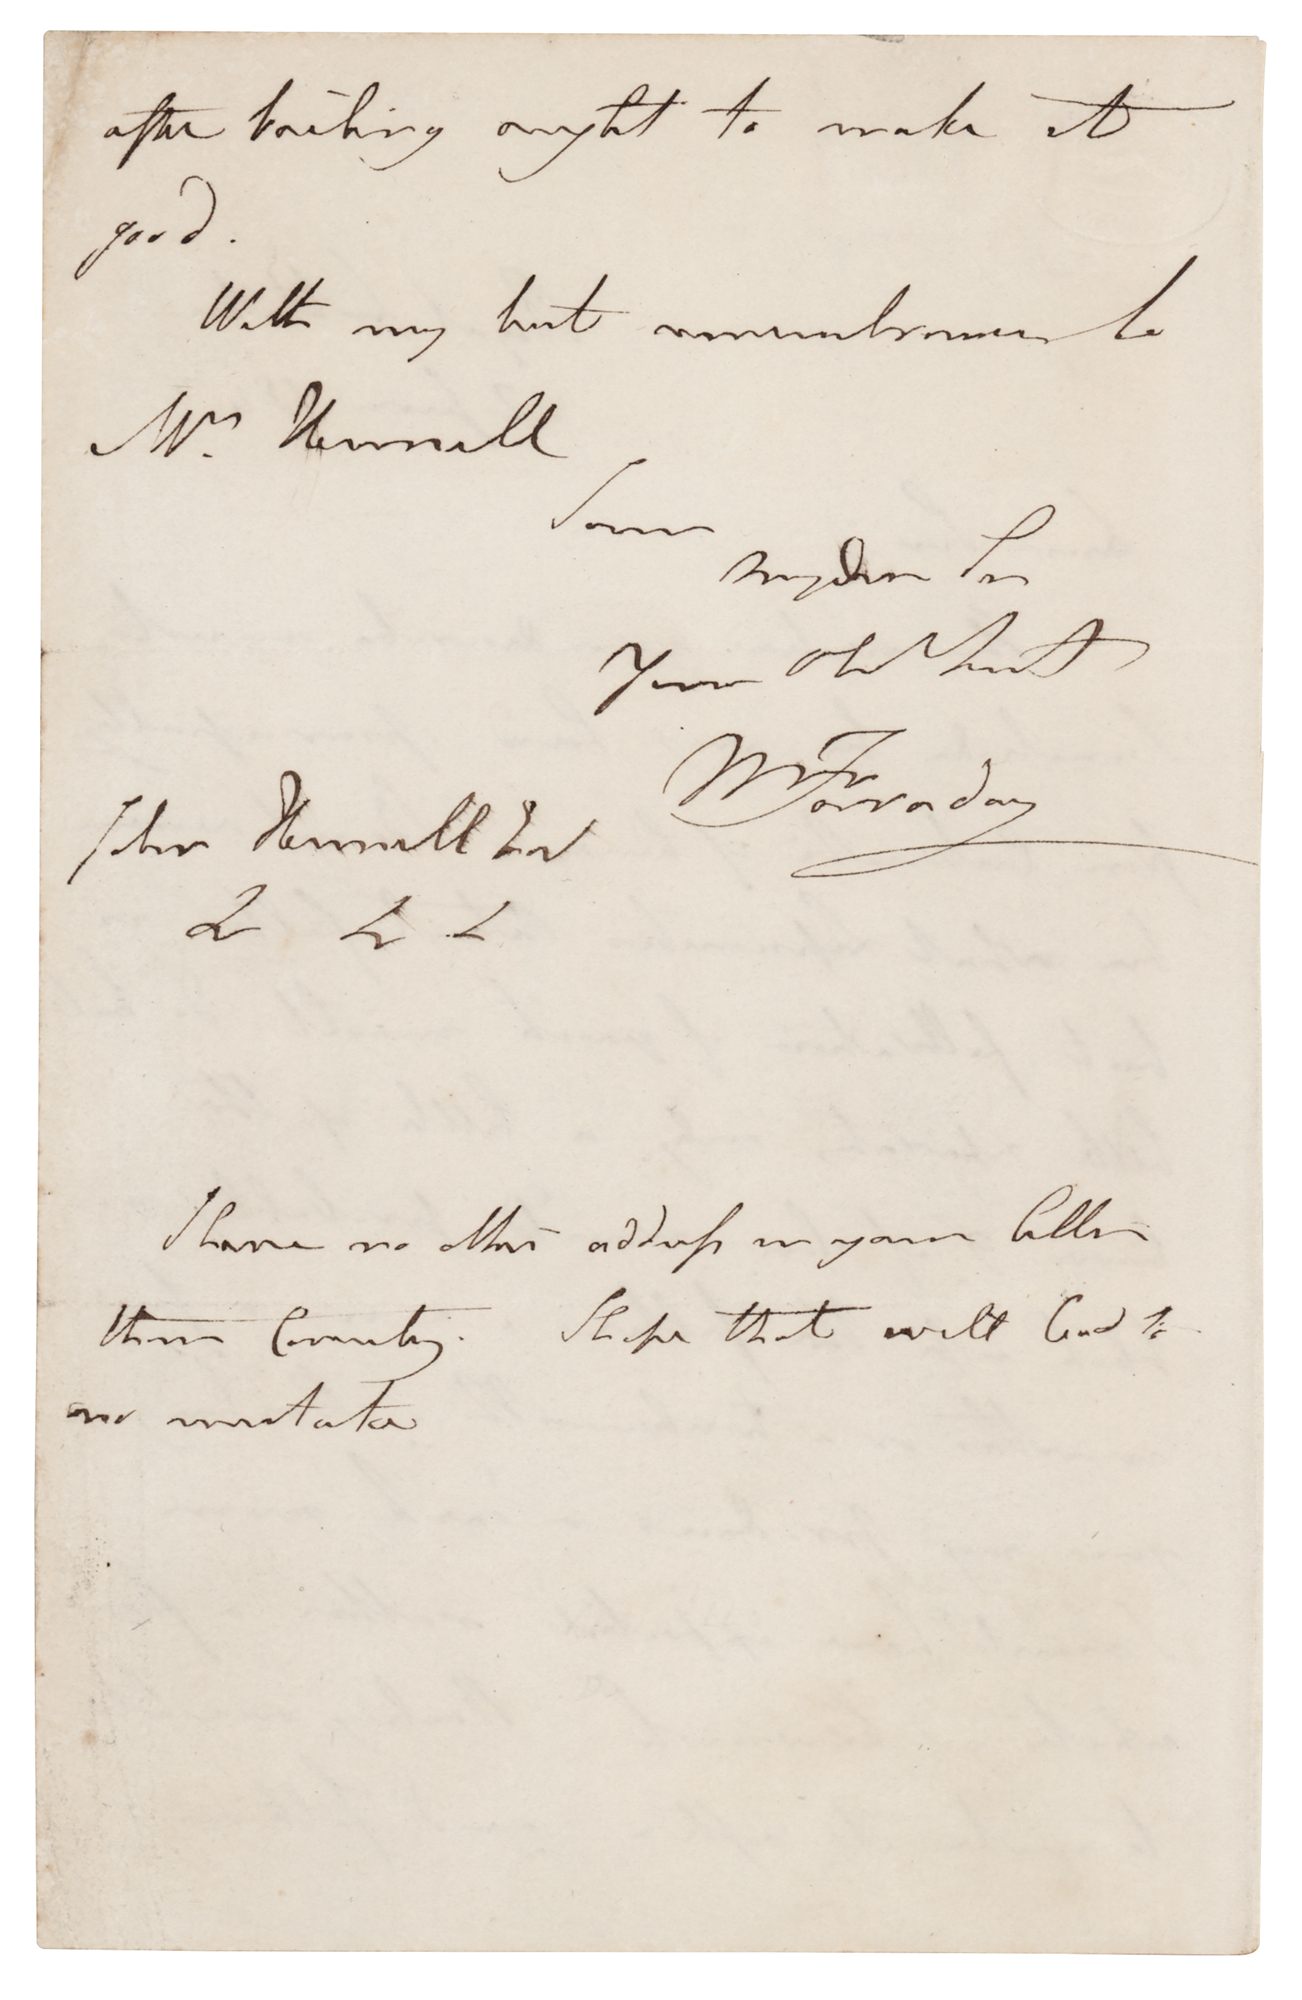 after boiling ought to make it
good.
With my best remembrances to
Mrs. Hennell
I am
My dear Sir
Your Obd Servt
M Faraday
John Hennell Esq
& &c &c
I have no other address in your letter
than Coventry. I hope that will lead to
no mistake